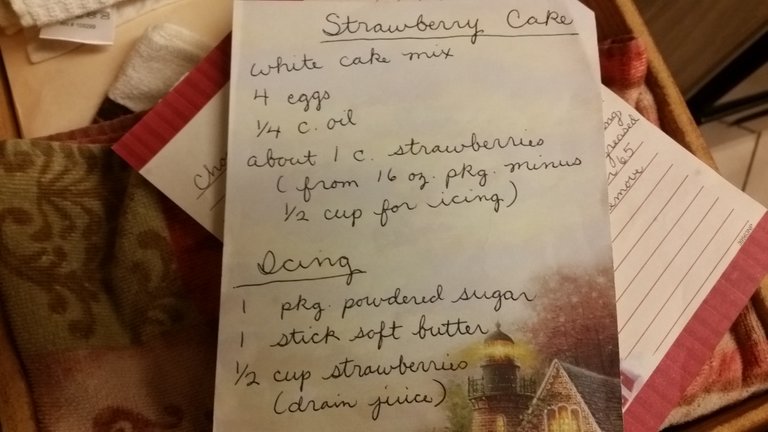 Strawberry Cake
white cake mix
4 eggs
1/4 c. oil
about 1 c. strawberries
(from 16 oz. pkg. minus
1/2 cup for icing)
Icing
1 pkg. powdered sugar
1 stick soft butter
1/2 cup strawberries
(drain juice)
Cho
greased
65